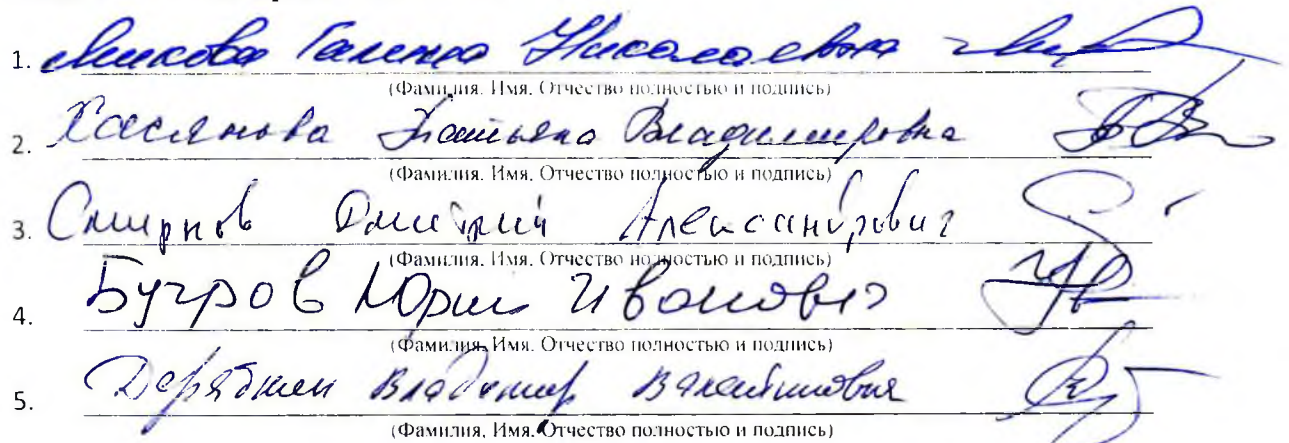 1. Галина Николаевна
(Фамилия, Имя, Отчество полностью и подпись)
2. Касянова Татьяна Владимировна
(Фамилия, Имя, Отчество полностью и подпись)
3. Смирнов Дмитрий Александрович
(Фамилия, Имя, Отчество полностью и подпись)
4. Бугров Юрий Иванович
(Фамилия, Имя, Отчество полностью и подпись)
5. Дерябкин Владимир Валентинович
(Фамилия, Имя, Отчество полностью и подпись)